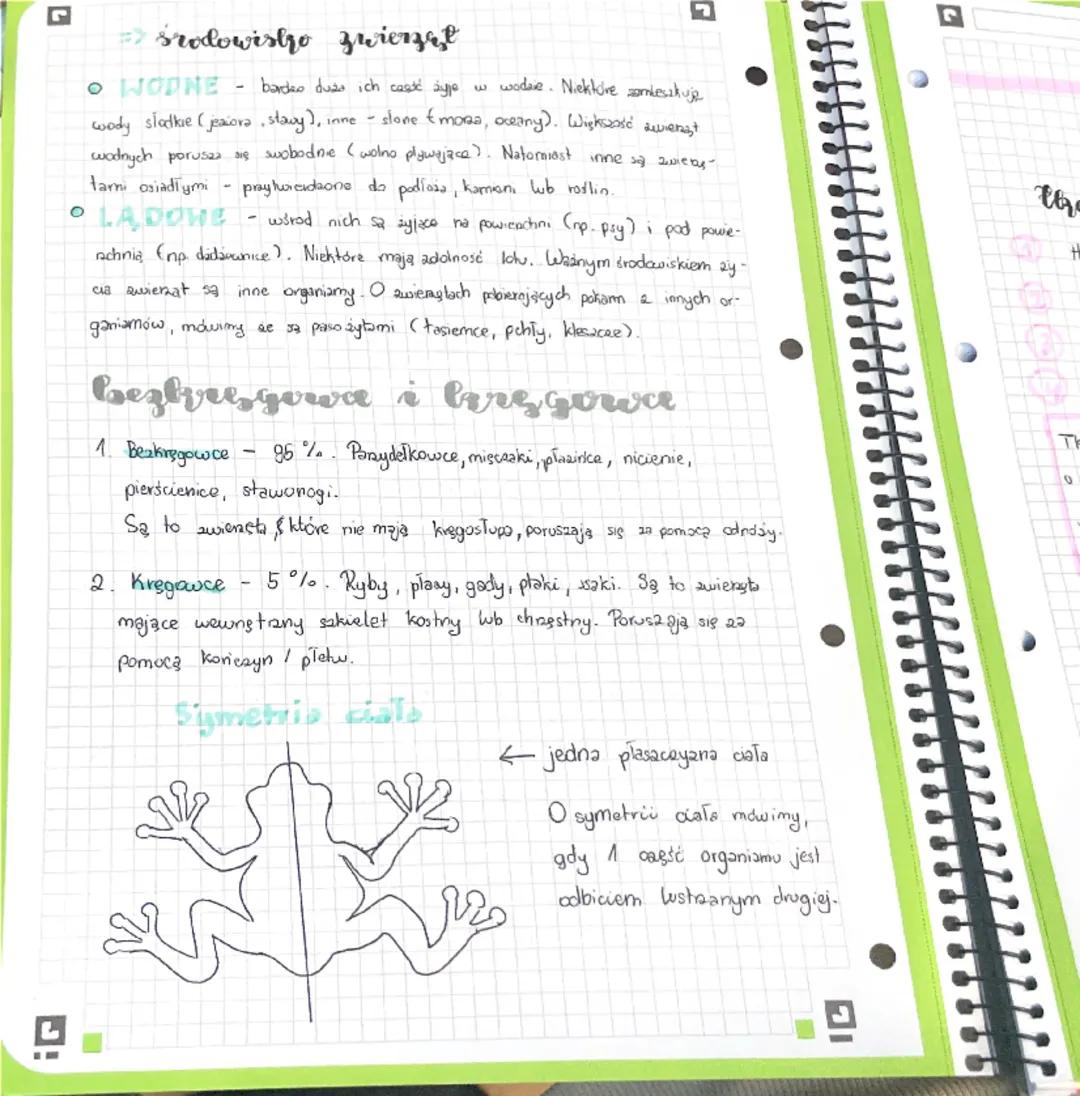 => środowisko zwierząt
WODNE - bardzo duża ich część żyje w wodzie. Niektóre zamieszkują
wody słodkie (jeziora, stawy), inne - słone (morza, oceany). Większość zwierząt
wodnych porusza się swobodnie (wolno pływające). Natomiast inne są zwierzę-
tami osiadłymi - przytwierdzone do podłoża, kamieni lub roślin.
LĄDOWE - wśród nich są żyjące na powierzchni (np. psy) i pod powie-
rzchnią (np. dżdżownice). Niektóre mają zdolność lotu. Ważnym środowiskiem ży-
cia zwierząt są inne organizmy. O zwierzętach pobierających pokarm z innych or-
ganizmów, mówimy że są pasożytami (tasiemce, pchły, kleszcze).
bezkręgowce i kręgowce
1. Bezkręgowce - 95 %. Parzydełkowce, mięczaki, płazińce, nicienie,
pierścienice, stawonogi.
Są to zwierzęta które nie mają kręgosłupa, poruszają się za pomocą odnóży.
2. Kręgowce - 5 %. Ryby, płazy, gady, ptaki, ssaki. Są to zwierzęta
mające wewnętrzny szkielet kostny lub chrzęstny. Poruszają się za
pomocą kończyn / płetw.
Symetria ciała
← jedna płaszczyzna ciała
O symetrii ciała mówimy,
gdy 1 część organizmu jest
odbiciem lustrzanym drugiej.